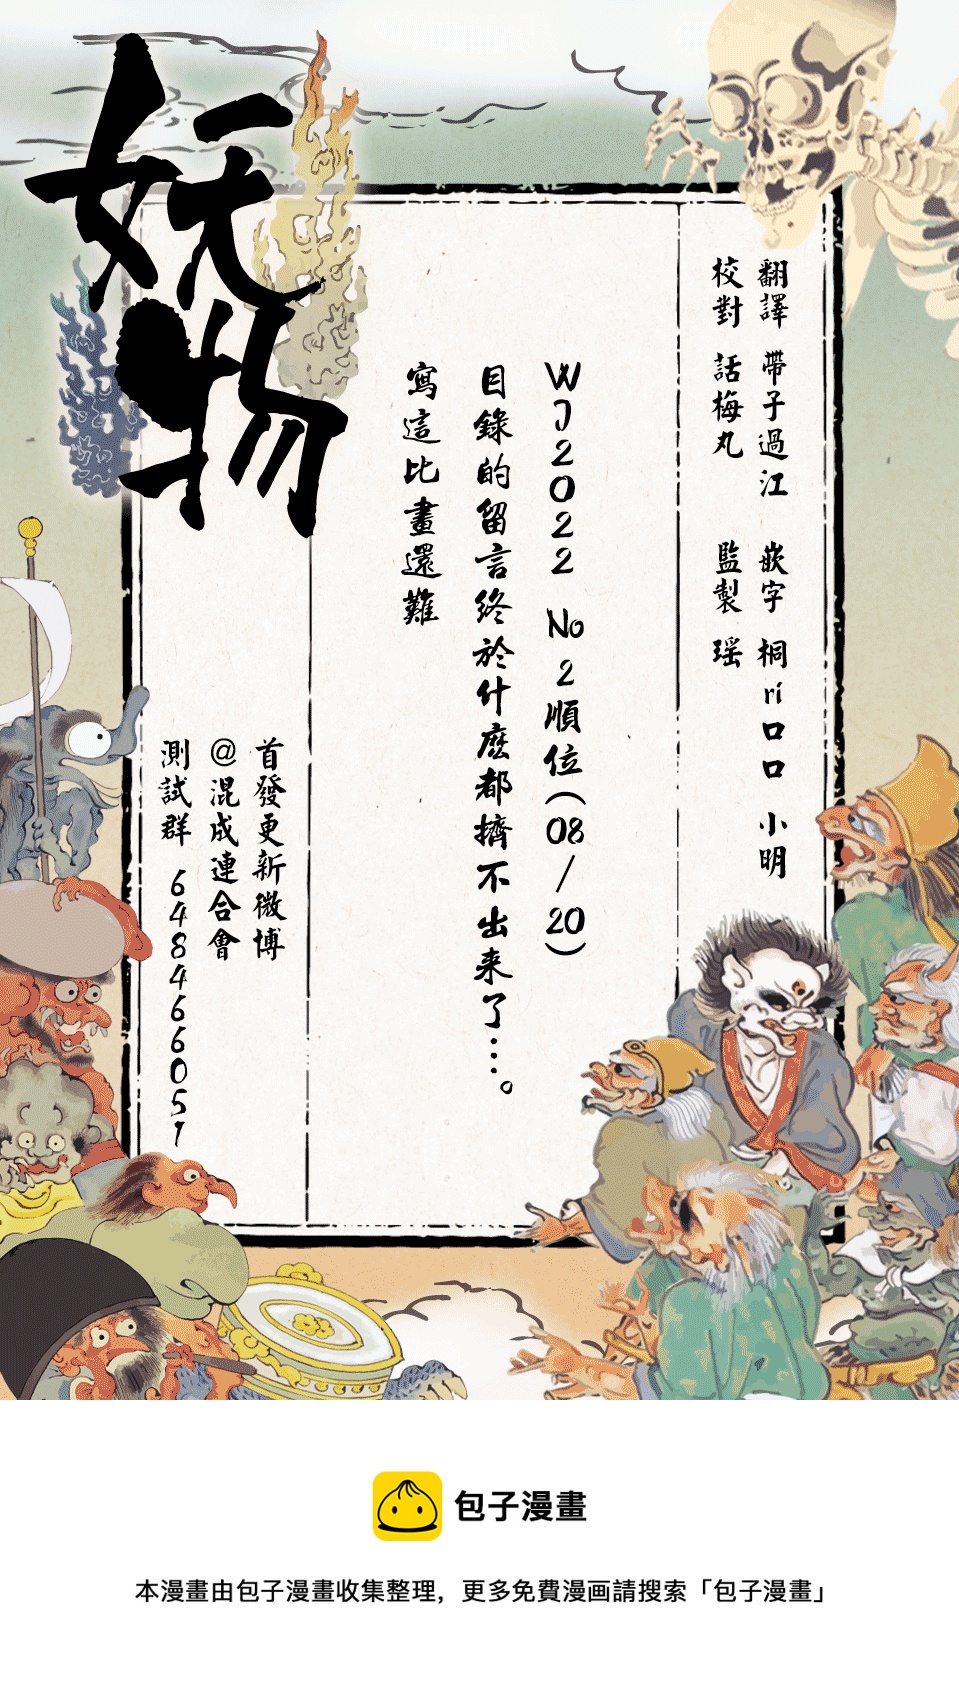 翻譯 帶子過江 嵌字 桐ri口口 小明
校對 話梅丸 監製 瑶
WJ2022 No 2順位(08/20)
目錄的留言終於什麽都擠不出来了…。
寫這比畫還難
妖物
首發更新微博
@混成連合會
測試群 648466051
包子漫畫
本漫畫由包子漫畫收集整理，更多免費漫画請搜索「包子漫畫」